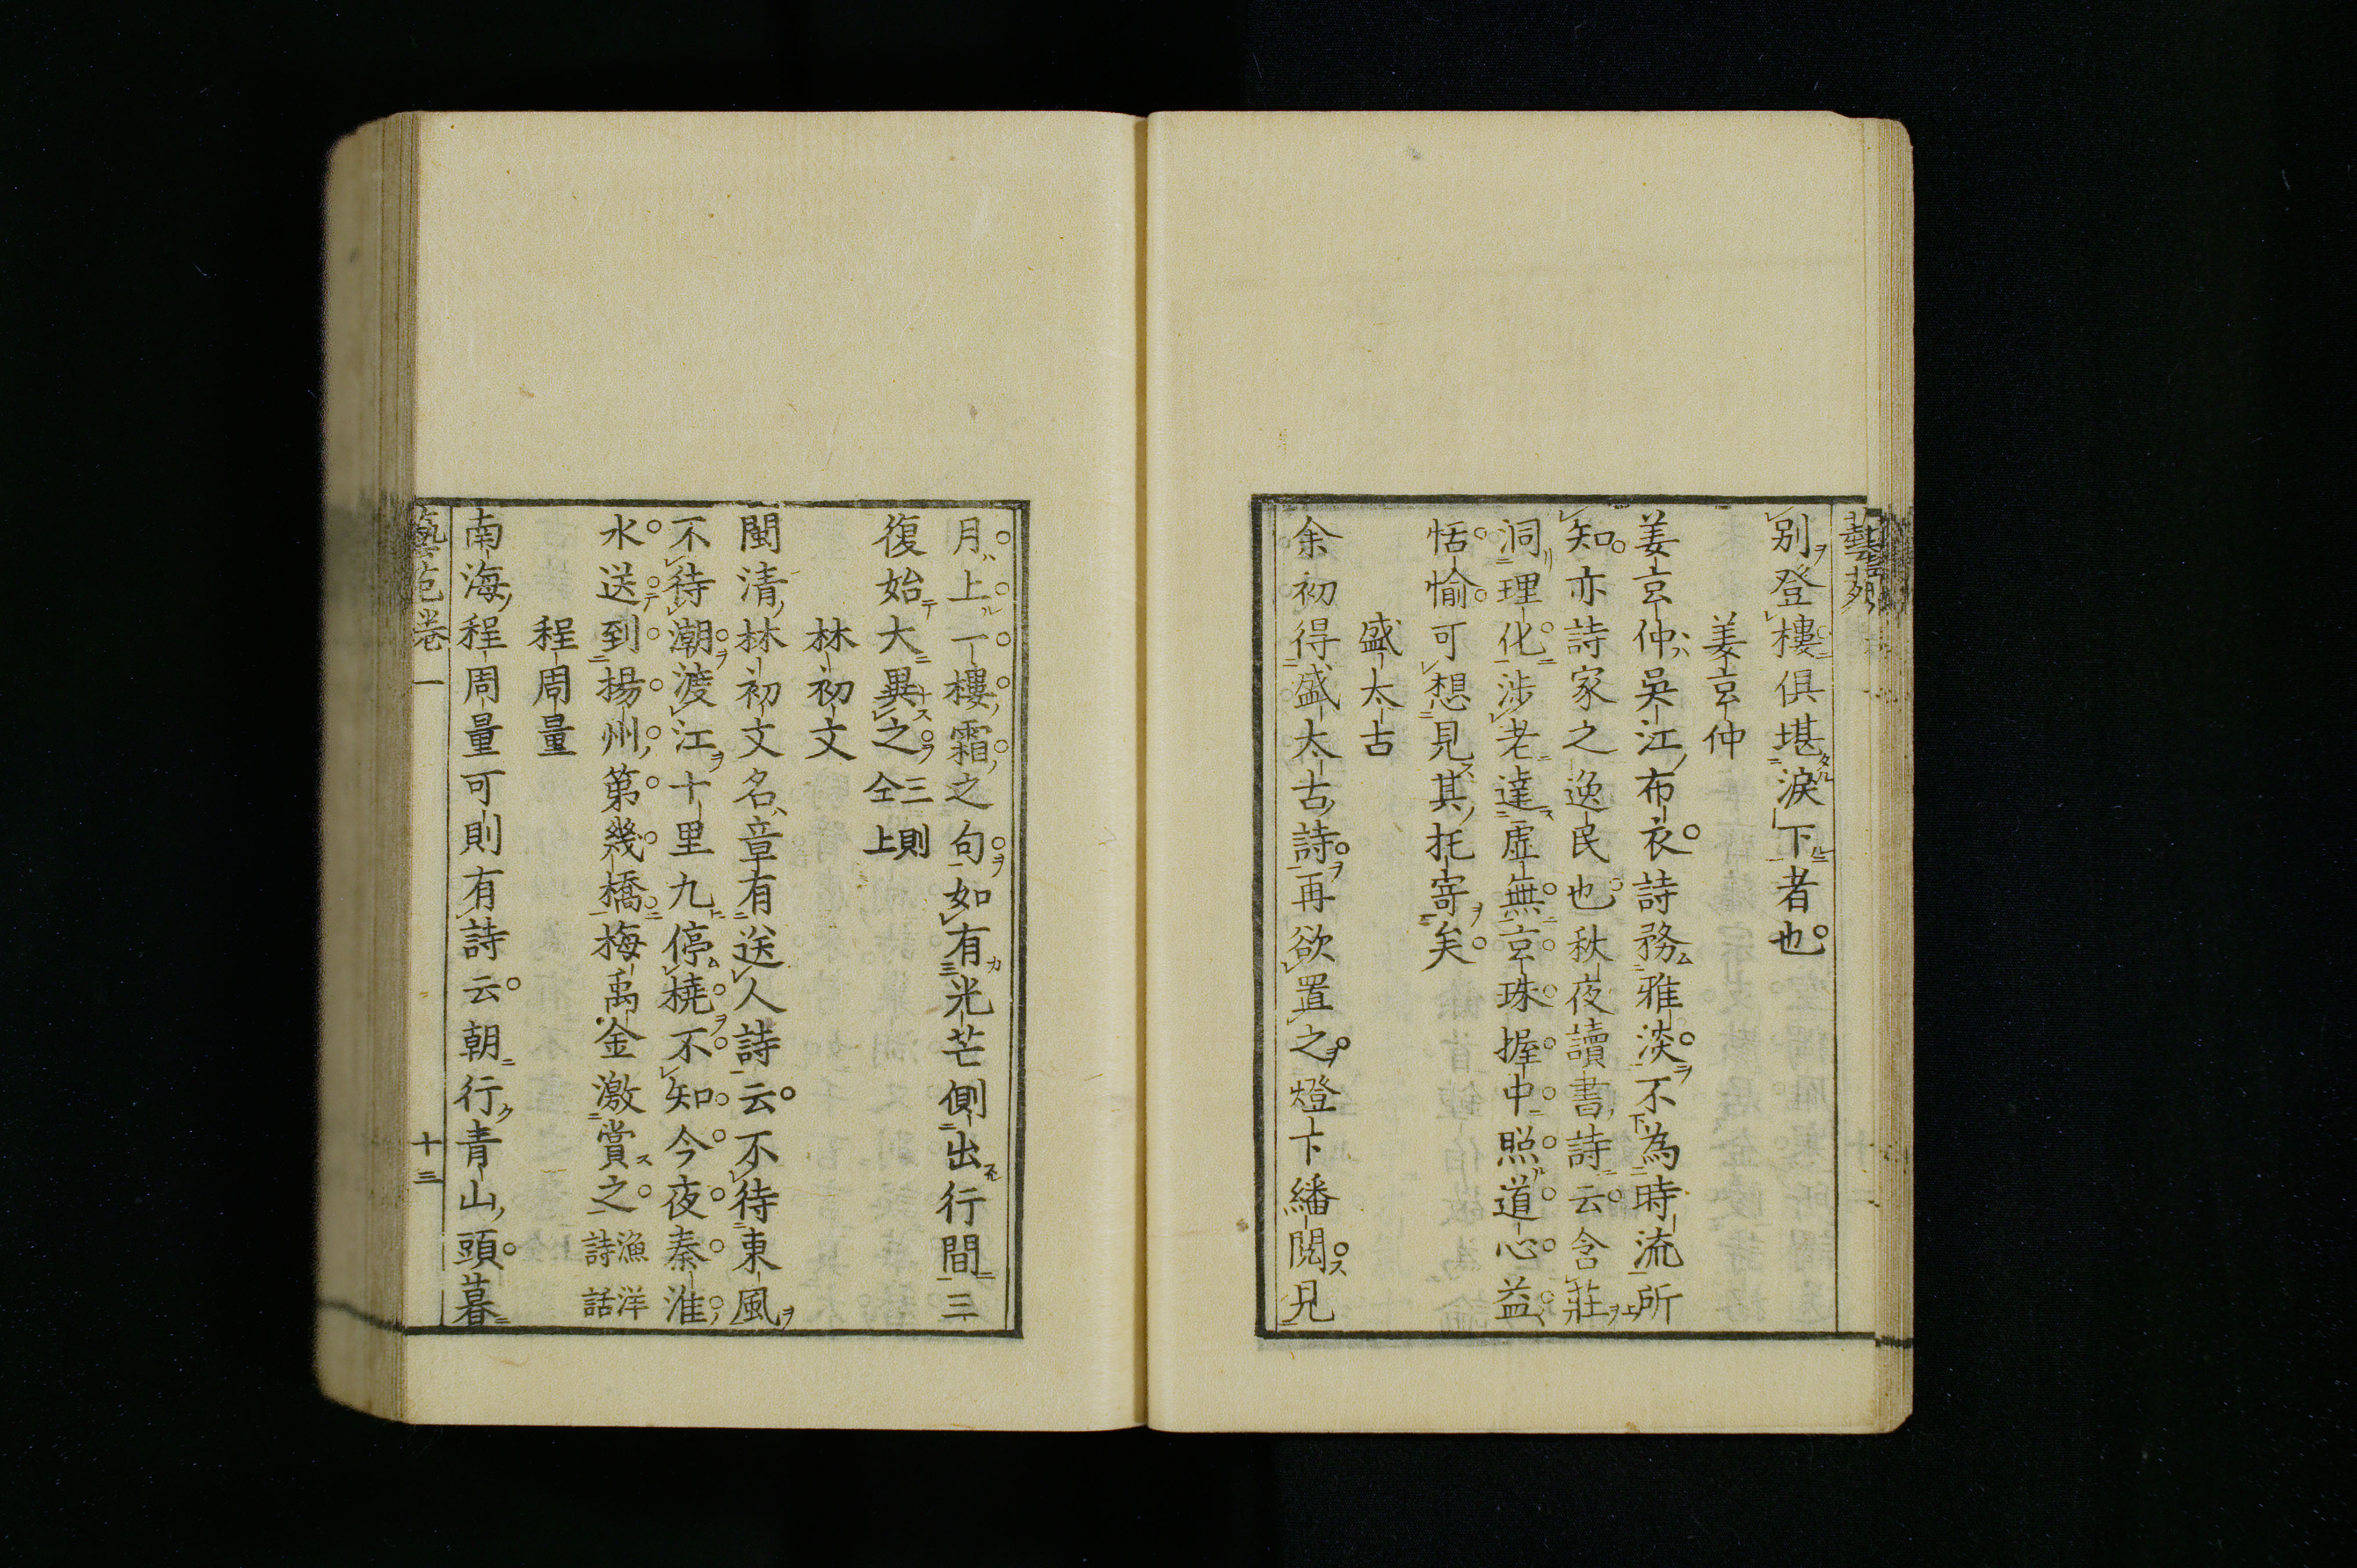 藝苑
別登樓俱堪淚下者也
姜玄仲
姜玄仲吳江布衣詩務雅淡不為時流所
知亦詩家之逸民也秋夜讀書詩云含莊
洞理化涉老達虛無玄珠握中照道心益
恬愉可想見其托寄矣
盛太古
余初得盛太古詩再欲置之燈下繙閱見
月上一樓霜之句如有光芒側出行間三
復始大異之三則仝上
林初文
閩清林初文名章有送人詩云不待東風
不待潮渡江十里九停橈不知今夜秦淮
水送到揚州第幾橋梅禹金激賞之漁洋詩話
程周量
南海程周量可則有詩云朝行青山頭暮
藝苑卷一
十三